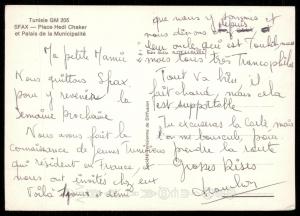 Tunisie GM 205
SFAX — Place Hedi Chaker
et Palais de la Municipalité
Ma petite Mamie
Nous quittons Sfax
pour y revenir la
semaine prochaine
Nous avons fait la
connaissance de jeunes Tunisiens
qui résident en France, et
nous ont invités chez eux
Voilà jours et demi
que nous y sommes et
depuis
nous
leur oncle qui est Toubib,
nous tous très francophiles
Tout va bien il
fait chaud, mais cela
est supportable.
Tu excuseras la carte mais
on me bouscule, pour
prendre la route
Grosses Bises